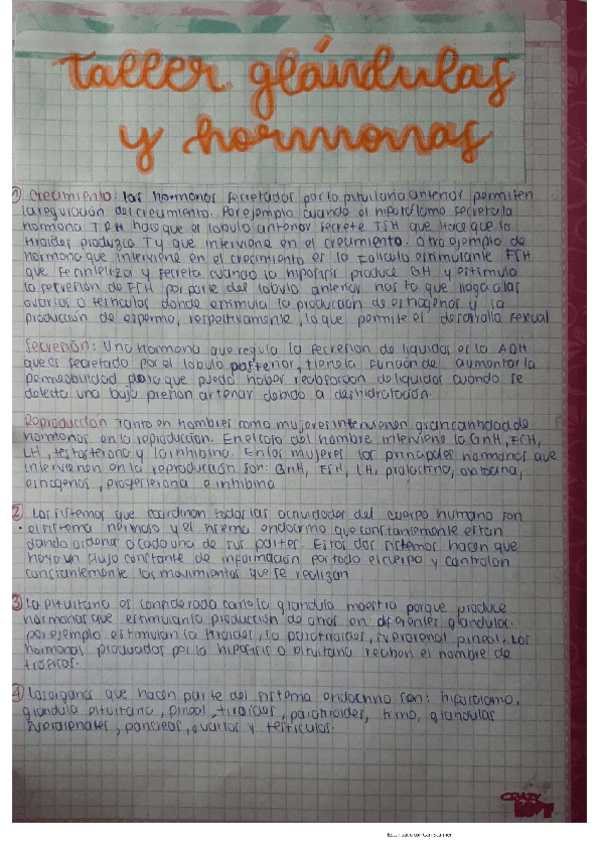 taller glándulas
y hormonas
1 Crecimiento: las hormonas secretadas por la pituitaria anterior permiten
la regulación del crecimiento. Por ejemplo cuando el hipotálamo secreta la
hormona TRH hace que el lobulo anterior secrete TSH que hace que la
tiroides produzca T4 que interviene en el crecimiento. Otro ejemplo de
hormona que interviene en el crecimiento es la Folículo estimulante FSH
que se y secreta cuando la hipofisis produce GH y estimula
la secresion de FSH por parte del lobulo anterior hasta que llega a las
ovarios o testiculos donde estimula la producción de estrogenos y la
producción de esperma, respectivamente, lo que permite el desarrollo sexual
Secresión: Una hormona que regula la secresion de liquidos es la ADH
que es secretado por el lobulo posterior, tiene la función de aumentar la
permeabilidad para que pueda haber reabsorcion de liquidos cuando se
detecta una baja presion arterial debido a deshidratación.
Reproducción Tanto en hombres como mujeres intervienen gran cantidad de
hormonas en la reproducción. En el caso del hombre interviene la GnH, FSH,
LH, testosterona y la inhibina. En las mujeres las principales hormonas que
intervienen en la reproducción son: GnH, FSH, LH, prolactina, oxitocina,
estrogenos, progesterona e inhibina
2 Los sistemas que coordinan todas las actividades del cuerpo humano son
el sistema nervioso y el sistema endocrino que constantemente estan
dando ordenes a cada una de sus partes. Estos dos sistemas hacen que
haya un flujo constante de información por todo el cuerpo y controlan
constantemente los movimientos que se realizan
3 La pituitaria es considerada como la glandula maestra porque produce
hormonas que estimulan la producción de otras en diferentes glandulas.
por ejemplo estimulan la tiroides, la paratiroides, suprarenal pineal. Las
hormonas producidas por la hipofisis o pituitaria reciben el nombre de
trópicas.
4 Los organos que hacen parte del sistema endocrino son: hipotalamo,
glandula pituitaria, pineal, tiroides, paratiroides, timo, glandulas
suprarrenales, pancreas, ovarios y testiculos.
CRAZY
LOVE
Escaneado con CamScanner